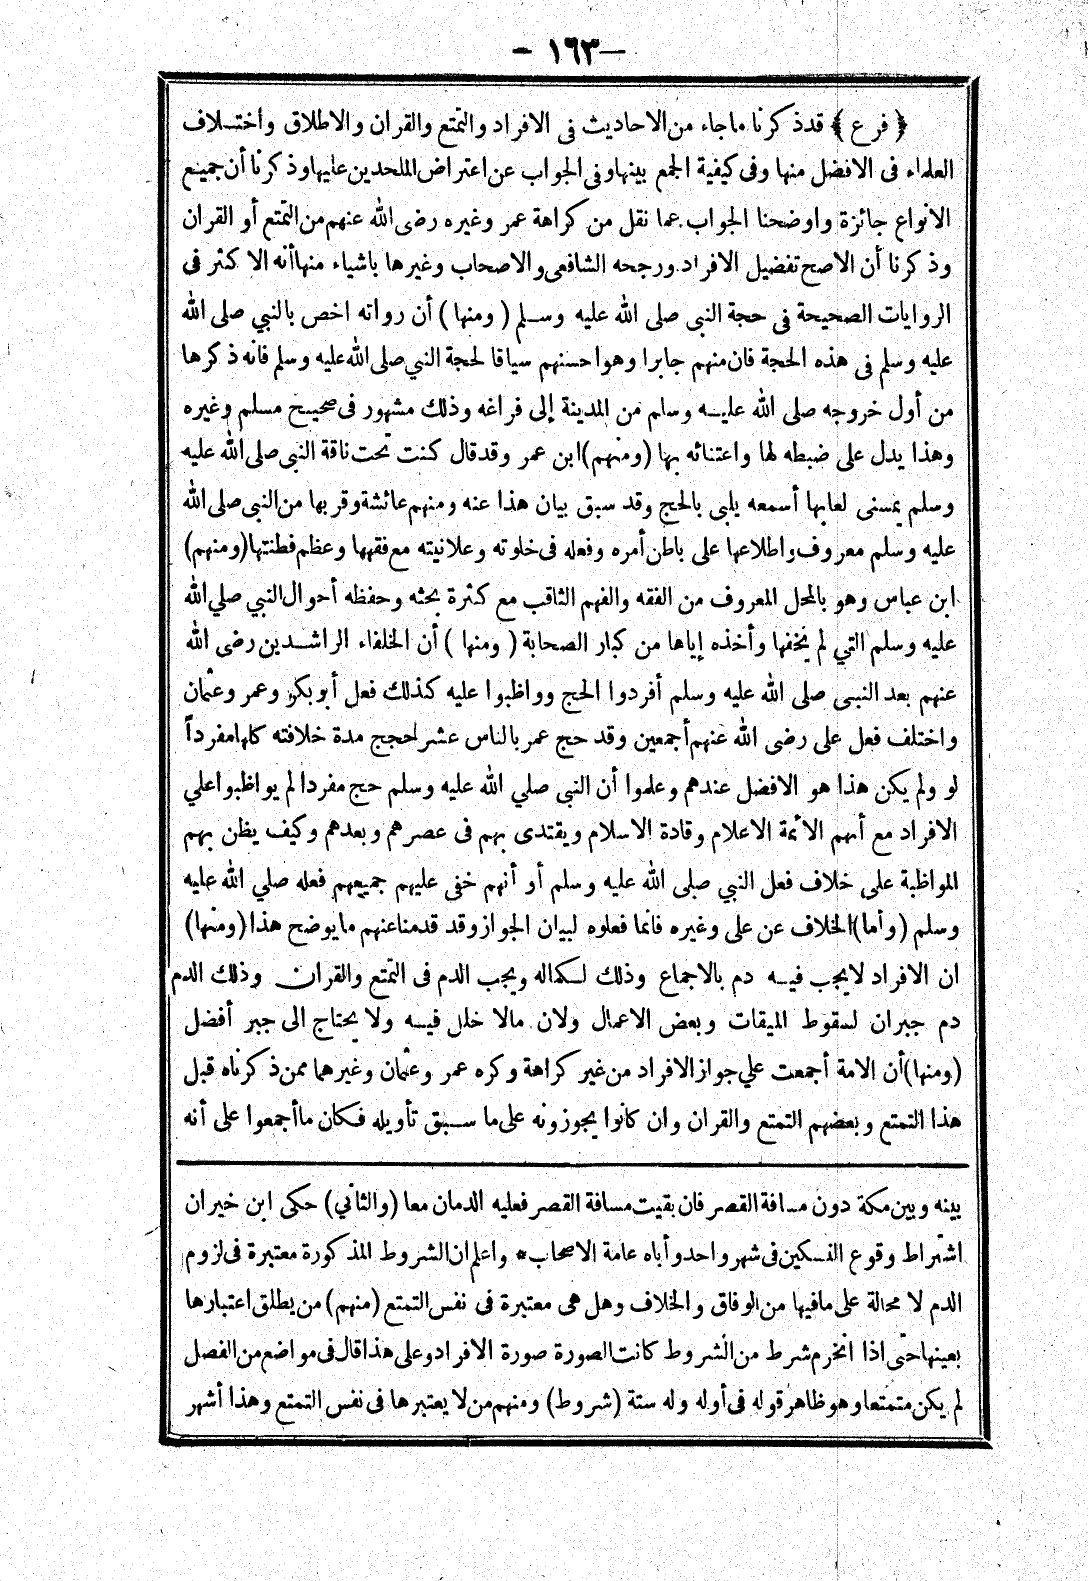 — ١٦٣ —
﴿ فرع ﴾ قدذ كرنا ماجاء من الاحاديث فى الافراد والتمتع والقران والاطلاق واختـلاف
العلماء فى الافضل منها وفى كيفية الجمع بينها وفى الجواب عن اعتراض الملحدين عليها وذكرنا أن جميع
الانواع جائزة واوضحنا الجواب عما نقل من كراهة عمر وغيره رضى الله عنهم من التمتع أو القران
وذكرنا أن الاصح تفضيل الافراد ورجحه الشافعى والاصحاب وغيرها باشياء منها أنه الاكثر فى
الروايات الصحيحة فى حجة النبى صلى الله عليه وسـلم ( ومنها ) أن رواته اخص بالنبي صلى الله
عليه وسلم فى هذه الحجة فان منهم جابرا وهو احسنهم سياقا لحجة النبي صلى الله عليه وسلم فانه ذكرها
من أول خروجه صلى الله عليـه وسلم من المدينة إلى فراغه وذلك مشهور فى صحيـح مسلم وغيره
وهذا يدل على ضبطه لها واعتنائه بها (ومنهم) ابن عمر وقد قال كنت تحت ناقة النبى صلى الله عليه
وسلم يمسنى لعابها أسمعه يلبى بالحج وقد سبق بيان هذا عنه ومنهم عائشة وقربها من النبى صلى الله
عليه وسلم معروف واطلاعها على باطن أمره وفعله فى خلوته وعلانيته مع فقهها وعظم فطنتها (ومنهم)
ابن عباس وهو بالمحل المعروف من الفقه والفهم الثاقب مع كثرة بحثه وحفظه أحوال النبي صلي الله
عليه وسلم التي لم يخفها وأخذه إياها من كبار الصحابة ( ومنها ) أن الخلفاء الراشـدين رضى الله
عنهم بعد النبى صلى الله عليه وسلم أفردوا الحج وواظبوا عليه كذلك فعل أبو بكر وعمر وعثمان
واختلف فعل على رضى الله عنهم أجمعين وقد حج عمر بالناس عشر حجج مدة خلافته كلها مفرداً
لو ولم يكن هذا هو الافضل عندهم وعلموا أن النبى صلي الله عليه وسلم حج مفردا لم يواظبوا علي
الافراد مع أنهم الائمة الاعلام وقادة الاسلام ويقتدى بهم فى عصرهم وبعدهم وكيف يظن بهم
المواظبة على خلاف فعل النبي صلى الله عليه وسلم أو أنهم خفى عليهم جميعهم فعله صلي الله عليه
وسلم (وأما) الخلاف عن على وغيره فانما فعلوه لبيان الجواز وقد قدمنا عنهم ما يوضح هذا (ومنها)
ان الافراد لايجب فيـه دم بالاجماع وذلك لـكماله ويجب الدم فى التمتع والقران وذلك الدم
دم جبران لسقوط الميقات وبعض الاعمال ولان مالا خلل فيـه ولا يحتاج الى جبر أفضل
(ومنها) أن الامة أجمعت علي جواز الافراد من غير كراهة وكره عمر وعثمان وغيرهما ممن ذكرناه قبل
هذا التمتع وبعضهم التمتع والقران وان كانوا يجوزونه على ما سـبق تأويله فـكان ما أجمعوا على أنه
بينه وبين مكة دون مسافة القصر فان بقيت مسافة القصر فعليه الدمان معا (والثاني) حكى ابن خيران
اشتراط وقوع النسكين فى شهر واحد وأباه عامة الاصحاب * واعلم ان الشروط المذكورة معتبرة فى لزوم
الدم لا محالة على مافيها من الوفاق والخلاف وهل هى معتبرة فى نفس التمتع (منهم) من يطلق اعتبارها
بعينها حتى اذا انخرم شرط من الشروط كانت الصورة صورة الافراد وعلى هذا قال فى مواضع من الفصل
لم يكن متمتعا وهو ظاهر قوله فى أوله وله ستة (شروط) ومنهم من لا يعتبرها فى نفس التمتع وهذا أشهر